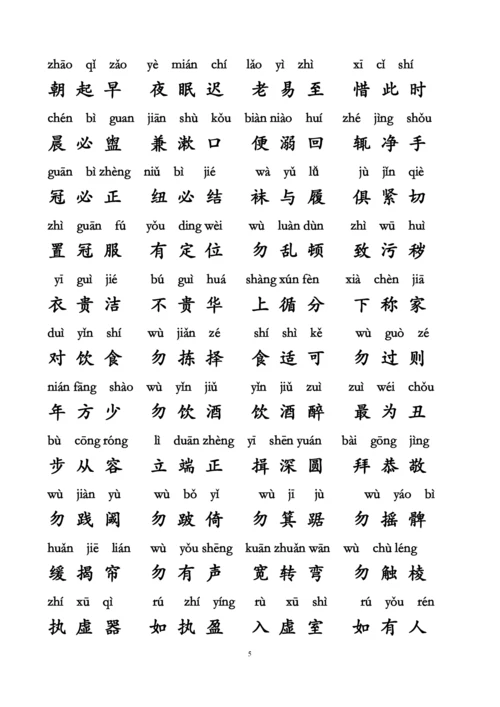 zhāo qǐ zǎo yè mián chí lǎo yì zhì xī cǐ shí
朝起早 夜眠迟 老易至 惜此时
chén bì guan jiān shù kǒu biàn niào huí zhé jìng shǒu
晨必盥 兼漱口 便溺回 辄净手
guān bì zhèng niǔ bì jié wà yǔ lǚ jù jǐn qiè
冠必正 纽必结 袜与履 俱紧切
zhì guān fú yǒu dìng wèi wù luàn dùn zhì wū huì
置冠服 有定位 勿乱顿 致污秽
yī guì jié bú guì huá shàng xún fèn xià chèn jiā
衣贵洁 不贵华 上循分 下称家
duì yǐn shí wù jiǎn zé shí shì kě wù guò zé
对饮食 勿拣择 食适可 勿过则
nián fāng shào wù yǐn jiǔ yǐn jiǔ zuì zuì wéi chǒu
年方少 勿饮酒 饮酒醉 最为丑
bù cōng róng lì duān zhèng yī shēn yuán bài gōng jìng
步从容 立端正 揖深圆 拜恭敬
wù jiàn yù wù bǒ yǐ wù jī jù wù yáo bì
勿践阈 勿跛倚 勿箕踞 勿摇髀
huǎn jiē lián wù yǒu shēng kuān zhuǎn wān wù chù léng
缓揭帘 勿有声 宽转弯 勿触棱
zhí xū qì rú zhí yíng rù xū shì rú yǒu rén
执虚器 如执盈 入虚室 如有人
5